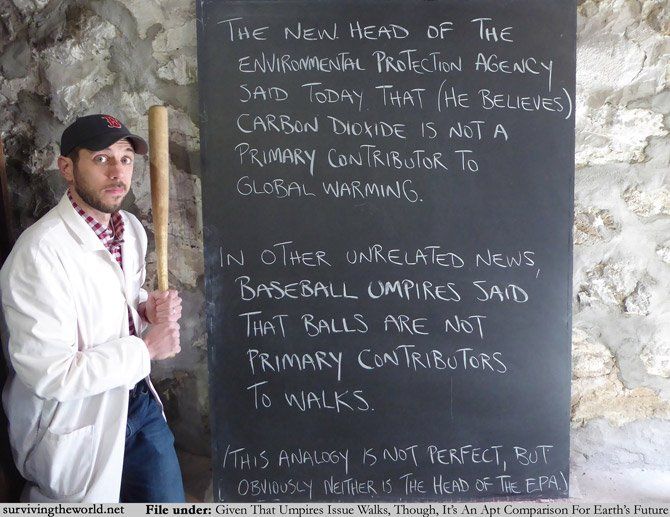 THE NEW HEAD OF THE
ENVIRONMENTAL PROTECTION AGENCY
SAID TODAY THAT (HE BELIEVES)
CARBON DIOXIDE IS NOT A
PRIMARY CONTRIBUTOR TO
GLOBAL WARMING.
IN OTHER UNRELATED NEWS,
BASEBALL UMPIRES SAID
THAT BALLS ARE NOT
PRIMARY CONTRIBUTORS
TO WALKS.
(THIS ANALOGY IS NOT PERFECT, BUT
OBVIOUSLY NEITHER IS THE HEAD OF THE EPA.)
B
survivingtheworld.net File under: Given That Umpires Issue Walks, Though, It's An Apt Comparison For Earth's Future